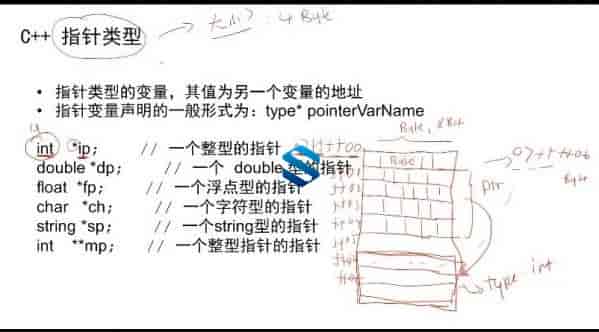 C++ 指针类型 大小？: 4 Byte
• 指针类型的变量，其值为另一个变量的地址
• 指针变量声明的一般形式为：type* pointerVarName
int *ip; // 一个整型的指针
double *dp; // 一个 double 型的指针
float *fp; // 一个浮点型的指针
char *ch; // 一个字符型的指针
string *sp; // 一个string型的指针
int **mp; // 一个整型指针的指针
Byte, 8Bit
Byte
ptr
type int